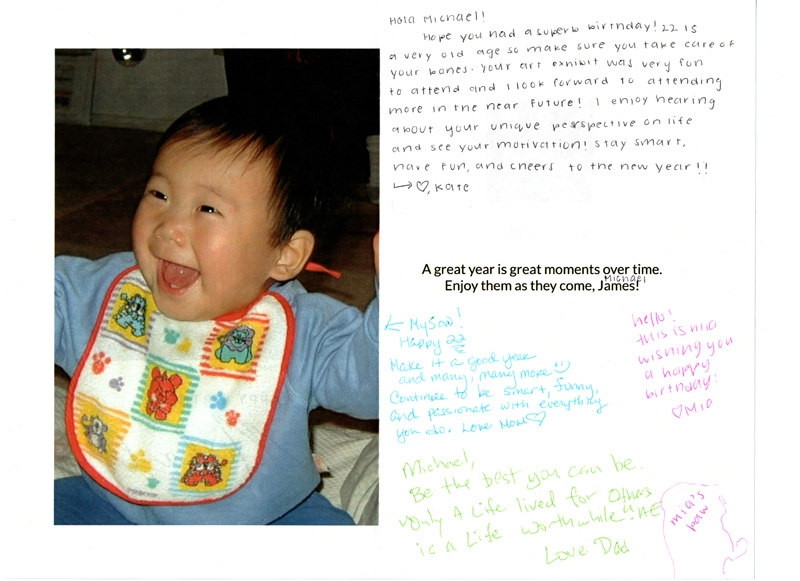 Hola Michael!
Hope you had a superb birthday! 22 is
a very old age so make sure you take care of
your bones. Your art exhibit was very fun
to attend and I look forward to attending
more in the near future! I enjoy hearing
about your unique perspective on life
and see your motivation! Stay smart,
have fun, and cheers to the new year!!
↳ ♡, Kate
A great year is great moments over time.
Michael
Enjoy them as they come, James!
← My Son!
Happy 22
Make it a good year
and many, many more :)
Continue to be smart, funny,
and passionate with everything
you do. Love Mom ♡
hello!
this is mia
wishing you
a happy
birthday!
♡ Mia
Michael,
Be the best you can be.
"Only A Life lived for Others
is a Life worthwhile" AE
Love Dad
mia's
paw